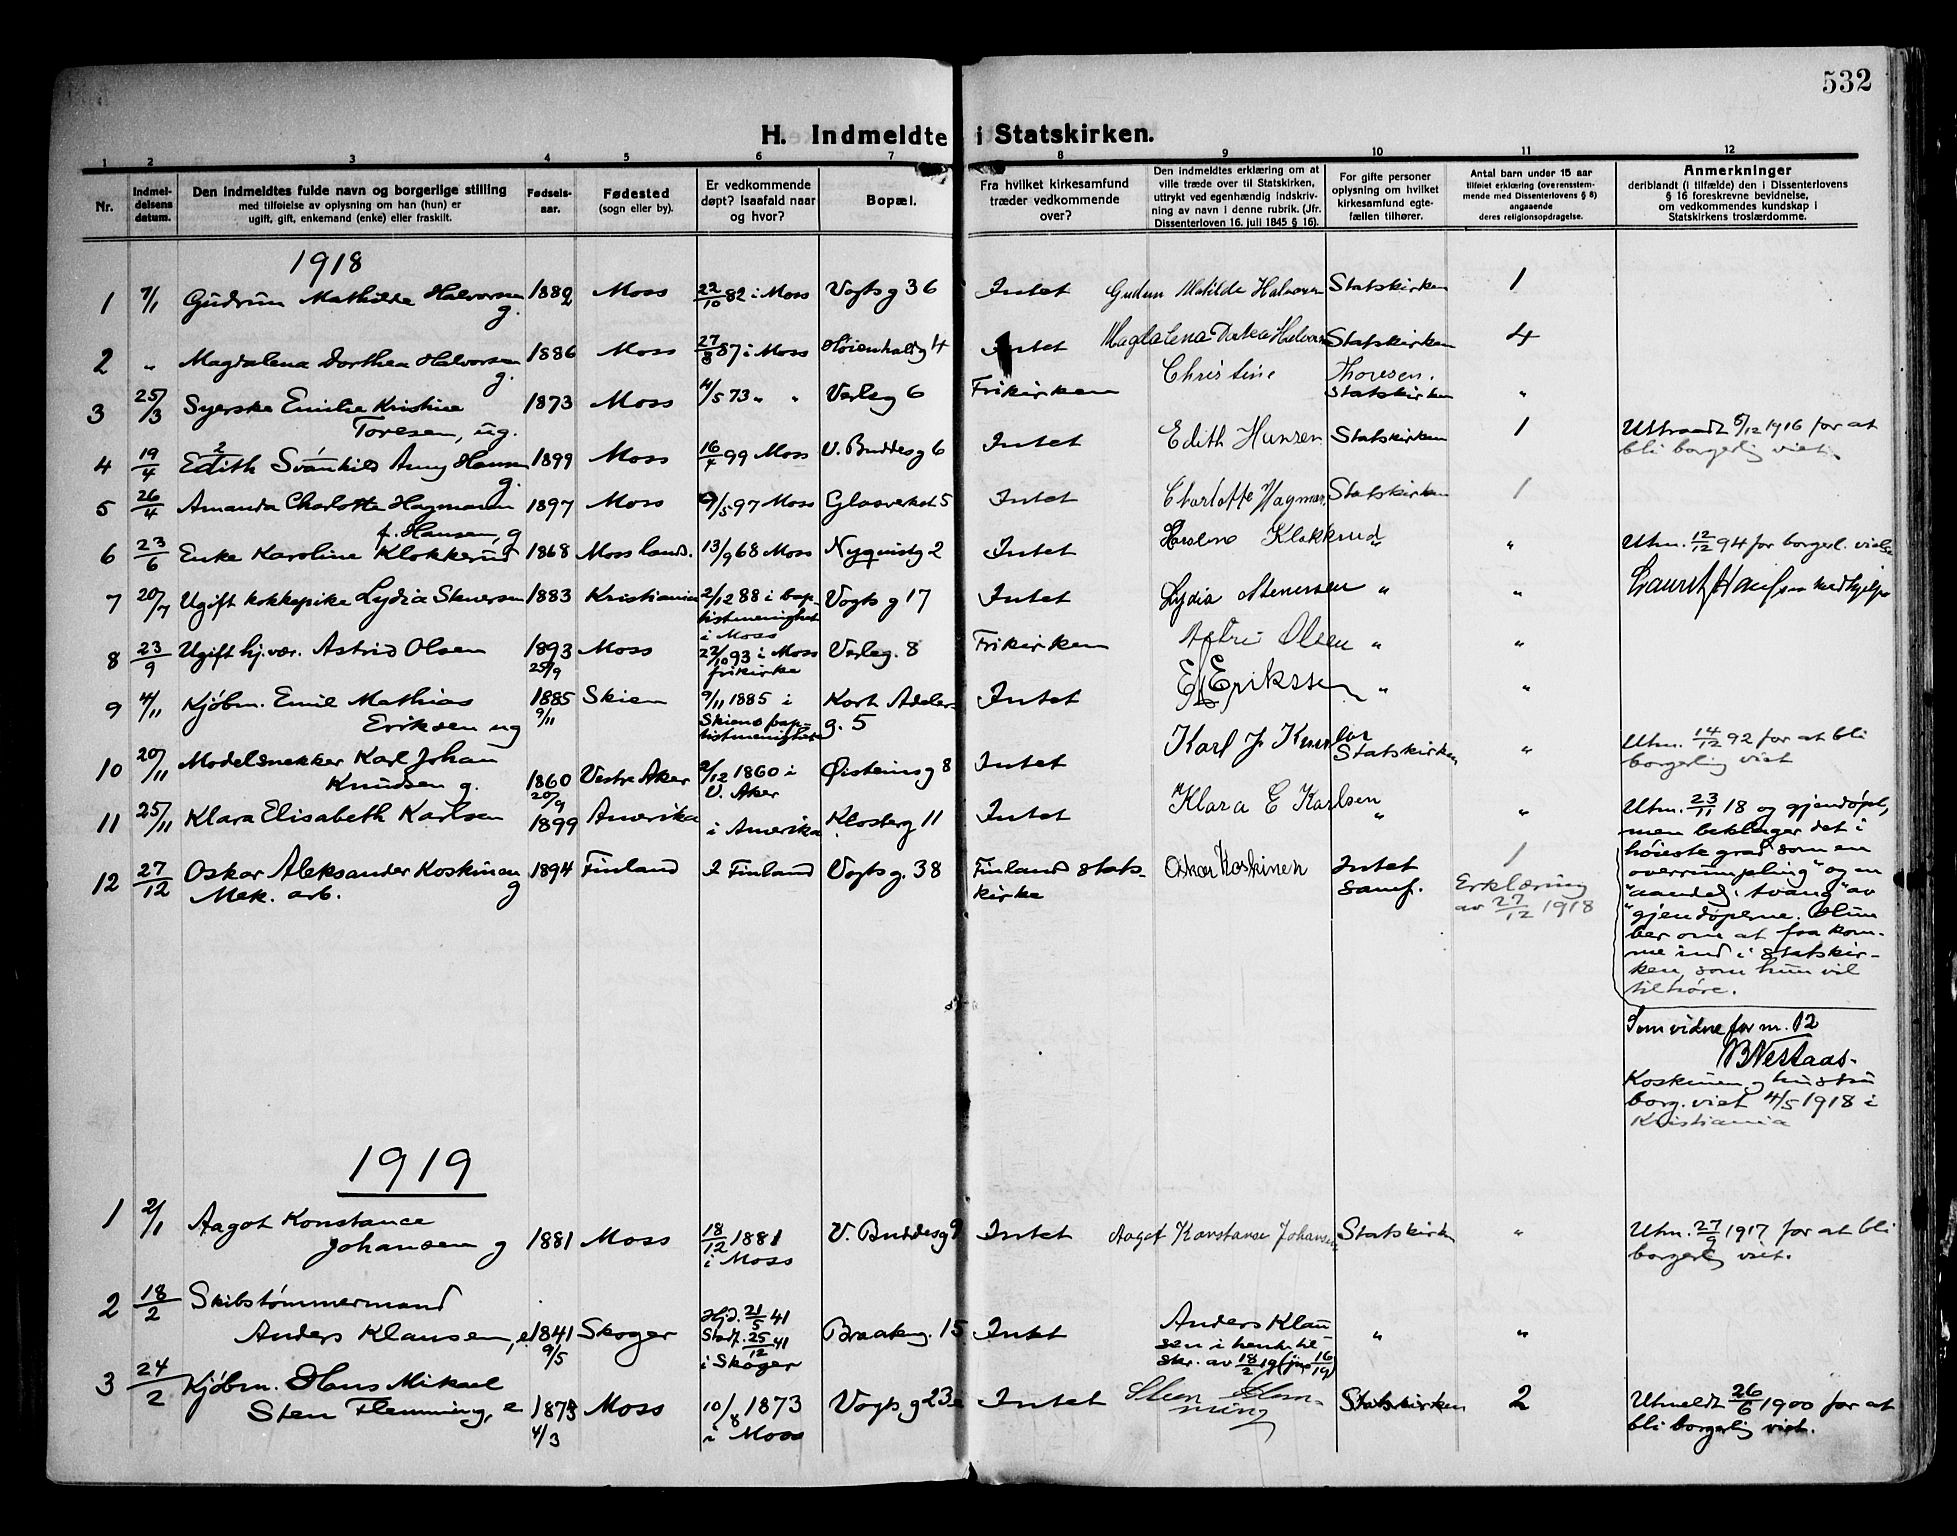 532
H. Indmeldte i Statskirken.
1 2 3 4 5 6 7 8 9 10 11 12
Nr.
Indmel-
delsens
datum.
Den indmeldtes fulde navn og borgerlige stilling
med tilføielse av oplysning om han (hun) er
ugift, gift, enkemand (enke) eller fraskilt.
Fødsels-
aar.
Fødested
(sogn eller by).
Er vedkommende
døpt? Isaafald naar
og hvor?
Bopæl.
Fra hvilket kirkesamfund
træder vedkommende
over?
Den indmeldtes erklæring om at
ville træde over til Statskirken,
uttrykt ved egenhændig indskriv-
ning av navn i denne rubrik. (Jfr.
Dissenterloven 16. juli 1845 § 16).
For gifte personer
oplysning om hvilket
kirkesamfund egte-
fællen tilhører.
Antal barn under 15 aar
tilføiet erklæring (overensstem-
mende med Dissenterlovens § 8)
angaaende
deres religionsopdragelse.
Anmerkninger
deriblandt (i tilfælde) den i Dissenterlovens
§ 16 foreskrevne bevidnelse,
om vedkommendes kundskap i
Statskirkens troslærdomme.
1918
1 7/1 Gudrun Mathilde Halvorsen g. 1882 Moss 22/10 82 i Moss Vogts g 36 Intet Gudrun Matilde Halvorsen Statskirken 1
2 " Magdalena Dorthea Halvorsen g. 1886 Moss 27/8 87 i Moss Høienhaldg 4 Intet Magdalena Dortea Halvorsen Statskirken 4
3 25/3 Syerske Emilie Kristine
Toresen, ug. 1873 Moss 4/5 73 " " Verleg 6 Frikirken Christine Thoresen. Statskirken "
4 19/4 Edith Svanhild Amy Hansen g. 1899 Moss 16/4 99 Moss V. Buddesg 6 Intet Edith Hansen Statskirken 1 Utraadt 6/12 1916 for at
bli borgerlig viet.
5 26/4 Amanda Charlotte Hagmann
f. Hansen, g 1897 Moss 9/5 97 Moss Glasverket 5 Intet Charlotte Hagman Statskirken 1
6 23/6 Enke Karoline Klokkerud 1868 Moss lands. 13/9 68 Moss Nyquistg 2 Intet Karoline Klokkrud " " Utm. 12/12 94 for borgerl. vielse
7 20/7 Ugift kokkepike Lydia Stenersen 1883 Kristiania 2/12 88 i bap-
tistmenighet
i Moss Vogts g 17 Intet Lydia Stenersen " " Lauritz Hansen medhjelper
8 23/9 Ugift hj.vær. Astrid Olsen 1893
25/9 Moss 22/10 93 i Moss
frikirke Verleg. 8 Frikirken Astri Olsen " "
9 4/11 Kjøbm. Emil Mathias
Eriksen ug 1885
9/11 Skien 9/11 1885 i
Skiens bap-
tistmenighet Kort Adelers
g. 5 Intet E M Erikssen " "
10 20/11 Modelsnekker Karl Johan
Knudsen g. 1860
20/9 Vestre Aker 2/12 1860 i
V. Aker Øisteinsg 8 Intet Karl J Knudsen Statskirken " Utm. 14/12 92 for at bli
borgerlig viet
11 25/11 Klara Elisabeth Karlsen 1899 Amerika i Amerika Klosterg 11 Intet Klara E Karlsen " " Utm. 23/11 18 og gjendøpt,
men beklager det i
høieste grad som en
"overrumpling" og en
"aandel. tvang" av
"gjendøperne. Hun
ber om at faa kom-
me ind i statskir-
ken, som hun vil
tilhøre.
12 27/12 Oskar Aleksander Koskinen g
Mek. arb. 1894 Finland I Finland Vogts g. 38 Finlands stats-
kirke Oskar Koskinen Intet
samf. 1
Erklæring
av 27/12 1918
Som vidne for nr. 12
B Nestaas-
Koskinen og hustru
borg. viet 4/5 1918 i
Kristiania
1919
1 2/1 Aagot Konstance
Johansen g 1881 Moss 18/12 1881
i Moss V. Buddesg 9 Intet Aagot Konstanse Johansen Statskirken " Utm. 27/9 1917 for at bli
borgerlig viet.
2 18/2 Skibstømmermand
Anders Klausen, e 1841
9/5 Skoger Hjd. 21/5 41
Stadf. 25/12 41
i Skoger Braateng. 15 Intet Anders Klau-
sen i henh. til
skr. av 18/2 19 " "
3 24/2 Kjøbm. Hans Mikael
Sten Flemming, e 1873
4/3 Moss 10/8 1873
i Moss Vogts g 23 Intet Steen Flem-
ming Statskirken 2 Utmeldt 26/6 1900 for at
bli borgerlig viet.